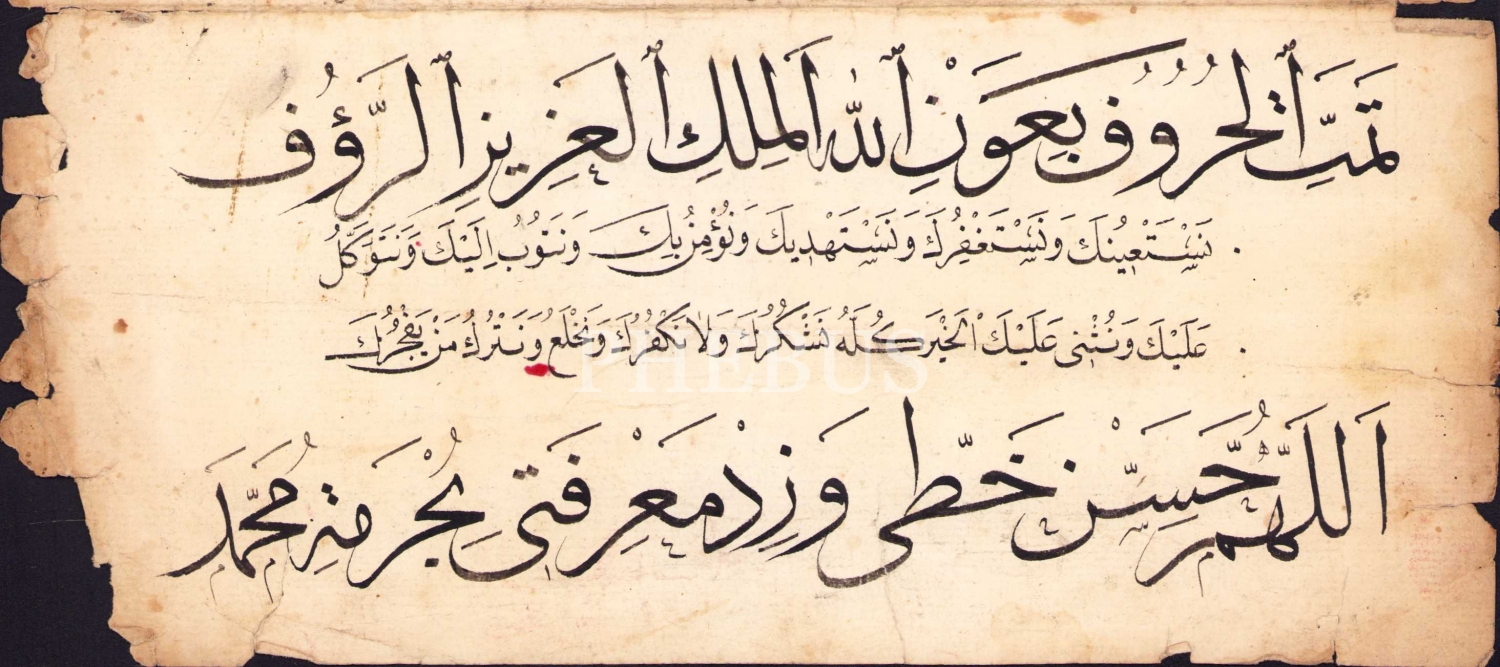 تَمَّتِ ٱلْحُرُوفُ بِعَوْنِ ٱللّٰهِ ٱلْمَلِكِ ٱلْعَزِيزِ ٱلرَّؤُفِ
نَسْتَعِينُكَ وَنَسْتَغْفِرُكَ وَنَسْتَهْدِيكَ وَنُؤْمِنُ بِكَ وَنَتُوبُ اِلَيْكَ وَنَتَوَكَّلُ
عَلَيْكَ وَنُثْنِى عَلَيْكَ الْخَيْرَ كُلَّهُ نَشْكُرُكَ وَلَا نَكْفُرُكَ وَنَخْلَعُ وَنَتْرُكُ مَنْ يَفْجُرُكَ
PHEBUS
اَللّٰهُمَّ حَسِّنْ خَطِّى وَزِدْ مَعْرِفَتِى بِحُرْمَةِ مُحَمَّدَ